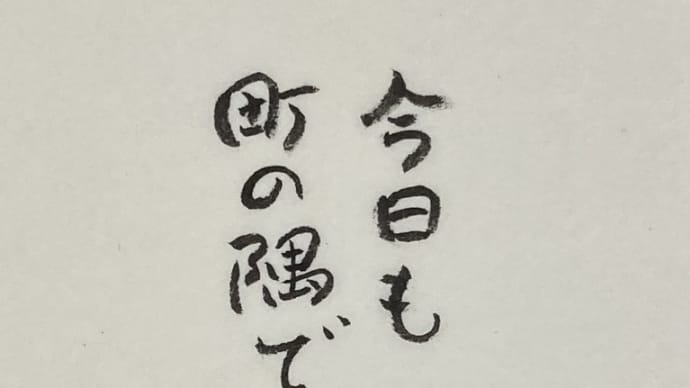 今日も
町の隅で